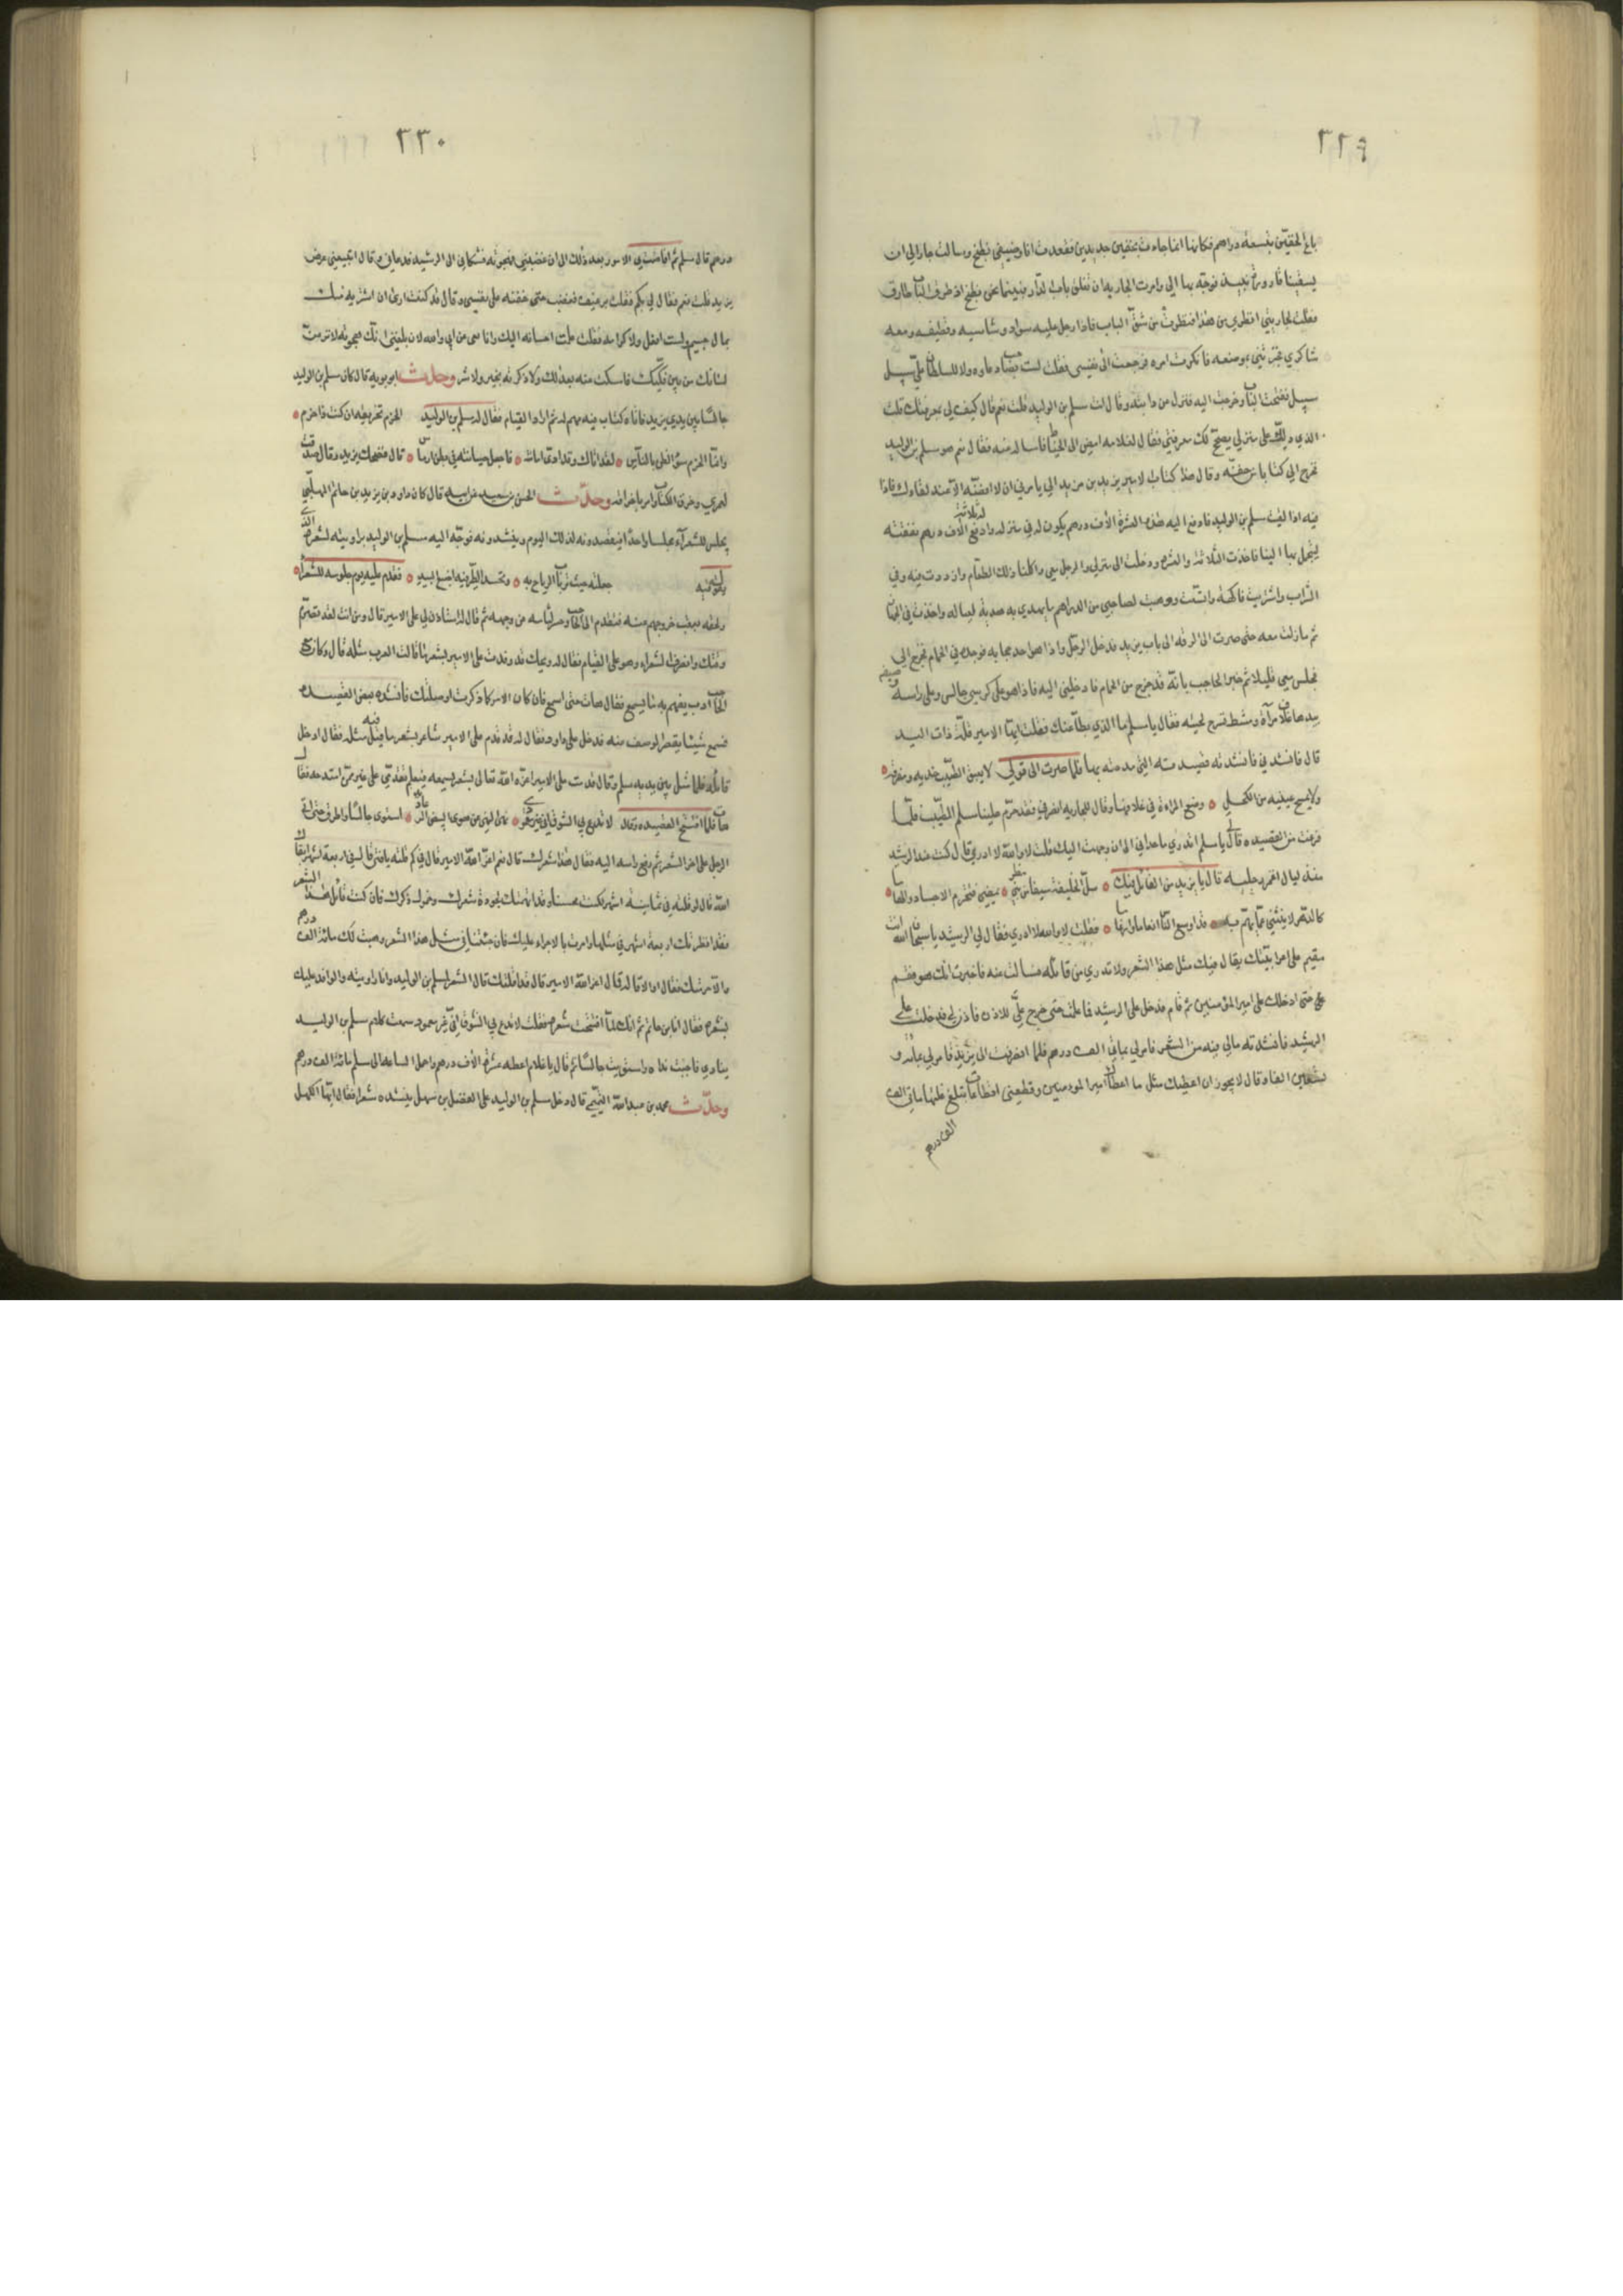 ٢٢٩
باع الخفين بتسعة دراهم فكانها انما جاءت بخفين جديدين فقعدت انا وضيفي نطبخ وسالت جارا لي ان
يسقينا قارورة نبيذ فوجه بها الي وامرت الجارية ان تغلق باب الدار فبينما نحن نطبخ اذ طرق الباب طارق
فقلت لجاريتي انظري من هذا فنظرت من شق الباب فاذا رجل عليه سواد وشاشيه ومنطقه ومعه
شاكري فخبرتني بموضعه فانكرت امره فرجعت الى نفسي فقلت لست بصاحب دعاره ولا للسلطان علي سبيل
سبيل ففتحت الباب وخرجت اليه فنزل من دابته وقال انت مسلم بن الوليد قلت نعم قال كيف لي بمعرفتك قلت
الذي دلك على منزلي يصحح لك معرفتي فقال لغلامه امض الى الخياط فاساله عنه فقال نعم هو مسلم بن الوليد
فخرج الي كتابا من خفه وقال هذا كتاب الامير يزيد بن مزيد الي يامرني ان لا افضه الا عند لقاءك فاذا
فيه اذا لقيت مسلم بن الوليد فادفع اليه هذه العشرة الاف درهم يكون له في منزله وادفع له ثلاثة الاف درهم نفقته
ليتجمل بها الينا فاخذت الثلاثة والعشره ودخلت الى منزلي والرجل معي واكلنا ذلك الطعام وازددت فيه وفي
الشراب واشتريت فاكهة واتسعت ووهبت لصاحبي من الدراهم ما يهدي به هدية لعياله واخذت في الجهاز
ثم ما زلت معه حتى صرت الى الرقه الى باب يزيد فدخل الرجل واذا هو احد حجابه فوجده في الحمام فخرج الي
فجلس معي قليلا ثم خبر الحاجب بانه قد خرج من الحمام فادخلني اليه فاذا هو على كرسي جالس وعلى راسه وصيفه
بيدها غلاف مرآة ومشط تسرح لحيته فقال يا مسلم ما الذي بطأ عنك فقلت ايها الامير قلة ذات اليد
قال فانشدني فانشدته قصيدته التي مدحته بها فلما صرت الى قولي لا يعبق الطيب خديه ومفرقه
ولا يمسح عينيه من الكحل وضع المراءة في غلافها وقال للجاريه انصرفي فقد حرم علينا مسلم الطيب فلما
فرغت من القصيده قال لي يا مسلم اتدري ما حداني الى ان وجهت اليك قلت لا والله لا ادري قال كنت عند الرشيد
منذ ليال اغمر رجليه قال يا يزيد من القائل فيك سل الخليفة سيفا من بني مطر يمضي فيخترم الاجساد والهاما
كالدهر لا ينثني عما يهم به قد اوسع الناس انعاما وارغاما فقلت لا والله لا ادري فقال لي الرشيد يا سبحان الله انت
مقيم على اعرابيتك يقال فيك مثل هذا الشعر ولا تدري من قائله فسالت عنه فاخبرت انك هو فقم
حتى ادخلك على امير المؤمنين ثم قام فدخل على الرشيد فما علمت حتى خرج علي الاذن فاذن لي فدخلت على
الرشيد فانشدته ما لي فيه من الشعر فامر لي بمايتي الف درهم فلما انصرفت الى يزيد فامر لي بمائة و
تسعين الفا وقال لا يجوز ان اعطيك مثل ما اعطاك امير المومنين وقطعني اقطاعات تبلغ غلتها مايتي الف
الف درهم
٢٣٠
درهم قال مسلم ثم افضت بي الامور بعد ذلك الى ان اغضبني فهجوته فشكاني الى الرشيد فدعاني وقال اتبيعني عرض
يزيد قلت نعم فقال لي بكم فقلت برغيف فغضب حتى خفته على نفسي وقال قد كنت ارى ان اشتريه منك
بمال جسيم ولست افعل ولا كرامه فقلت علمت احسانه اليك وانا نفي من ابي والله لان بلغني انك هجوته لانزعن
لسانك من بين فكيك فامسكت عنه بعد ذلك ولا ذكرته بخير ولا شر وحدث ابو توبه قال كان مسلم بن الوليد
جالسا بين يدي يزيد فاتاه كتاب فيه مهم له ثم اراد القيام فقال له مسلم بن الوليد الحزم تحريقه ان كنت ذا حزم
وانما الحزم سؤ الظن بالناس لقد اتاك وقد ادى امانته فاجعل صيانته في بطن ارماس قال فضحك يزيد وقال صدقت
لعمري وخرق الكتاب وامر باحراقه وحدث الحسن بن سعيد عن ابيه قال كان داود بن يزيد بن حاتم المهلبي
يجلس للشعراء مجلسا واحدا فيقصدونه لذلك اليوم وينشدونه فوجه اليه مسلم بن الوليد براويته لشعره الذي
يقول فيه جعلته حيث ترتاب الرياح به وتحسد الطير فيه اضبع البيد فقدم عليه يوم جلوسه للشعراء
ولحقه بعقب خروجهم عنه فتقدم الى الحاجب وحسر لثامه عن وجهه ثم قال له استاذن لي على الامير قال ومن انت لقد تصرم
وقتك وانصرف الشعراء وهو على القيام فقال له ويحك قد وفدت على الامير بشعر ما قالت العرب مثله قال وكان في
الحاجب ادب يفهم به ما يسمع فقال هات حتى اسمع فان كان الامر كما ذكرت اوصلتك فانشده بعض القصيده
فسمع شيئا يقصر الوصف عنه فدخل على داود فقال له قد قدم على الامير شاعر بشعر ما قيل فيه مثله فقال ادخل
قائله فلما مثل بين يديه سلم وقال قدمت على الامير اعزه الله تعالى بشعر يسمعه فيعلم تقدمي على غيري ممن امتدحه فقال
هات فلما افتتح القصيده وقال لا تدع بي الشوق اني غير معمود نهى النهى عن هوى البيض الرعاديد استوى جالسا واطرق حتى اتى
الرجل على اخر الشعر ثم رفع راسه اليه فقال هذا شعرك قال نعم اعز الله الامير قال في كم قلته يا فتى قال في اربعة اشهر ابقاك
الله قال لو قلته في ثمانيه اشهر لكنت محسنا وقد اتهمتك لجودة شعرك وخمول ذكرك فان كنت قائل هذا الشعر
فقد انظرتك اربعة اشهر في مثلها وامرت بالاجراء عليك فان جئتنا في مثل هذا الشعر وهبت لك مائة الف درهم
والا حرمتك فقال او الاقاله قال اعز الله الامير قال قد اقلتك قال الشعر لمسلم بن الوليد وانا راويته والوافد عليك
بشعره فقال انا ابن حاتم ثم انك لما افتتحت شعره فقلت لا تدع بي الشوق اني غير معمود سمعت كلام مسلم بن الوليد
يناديني فاجبت نداه واستويت جالسا ثم قال يا غلام اعطه عشرة الاف درهم واحمل الساعه الى مسلم مائة الف درهم
وحدث محمد بن عبد الله التميمي قال دخل مسلم بن الوليد على الفضل بن سهل ينشده شعرا فقال ايها الكهل